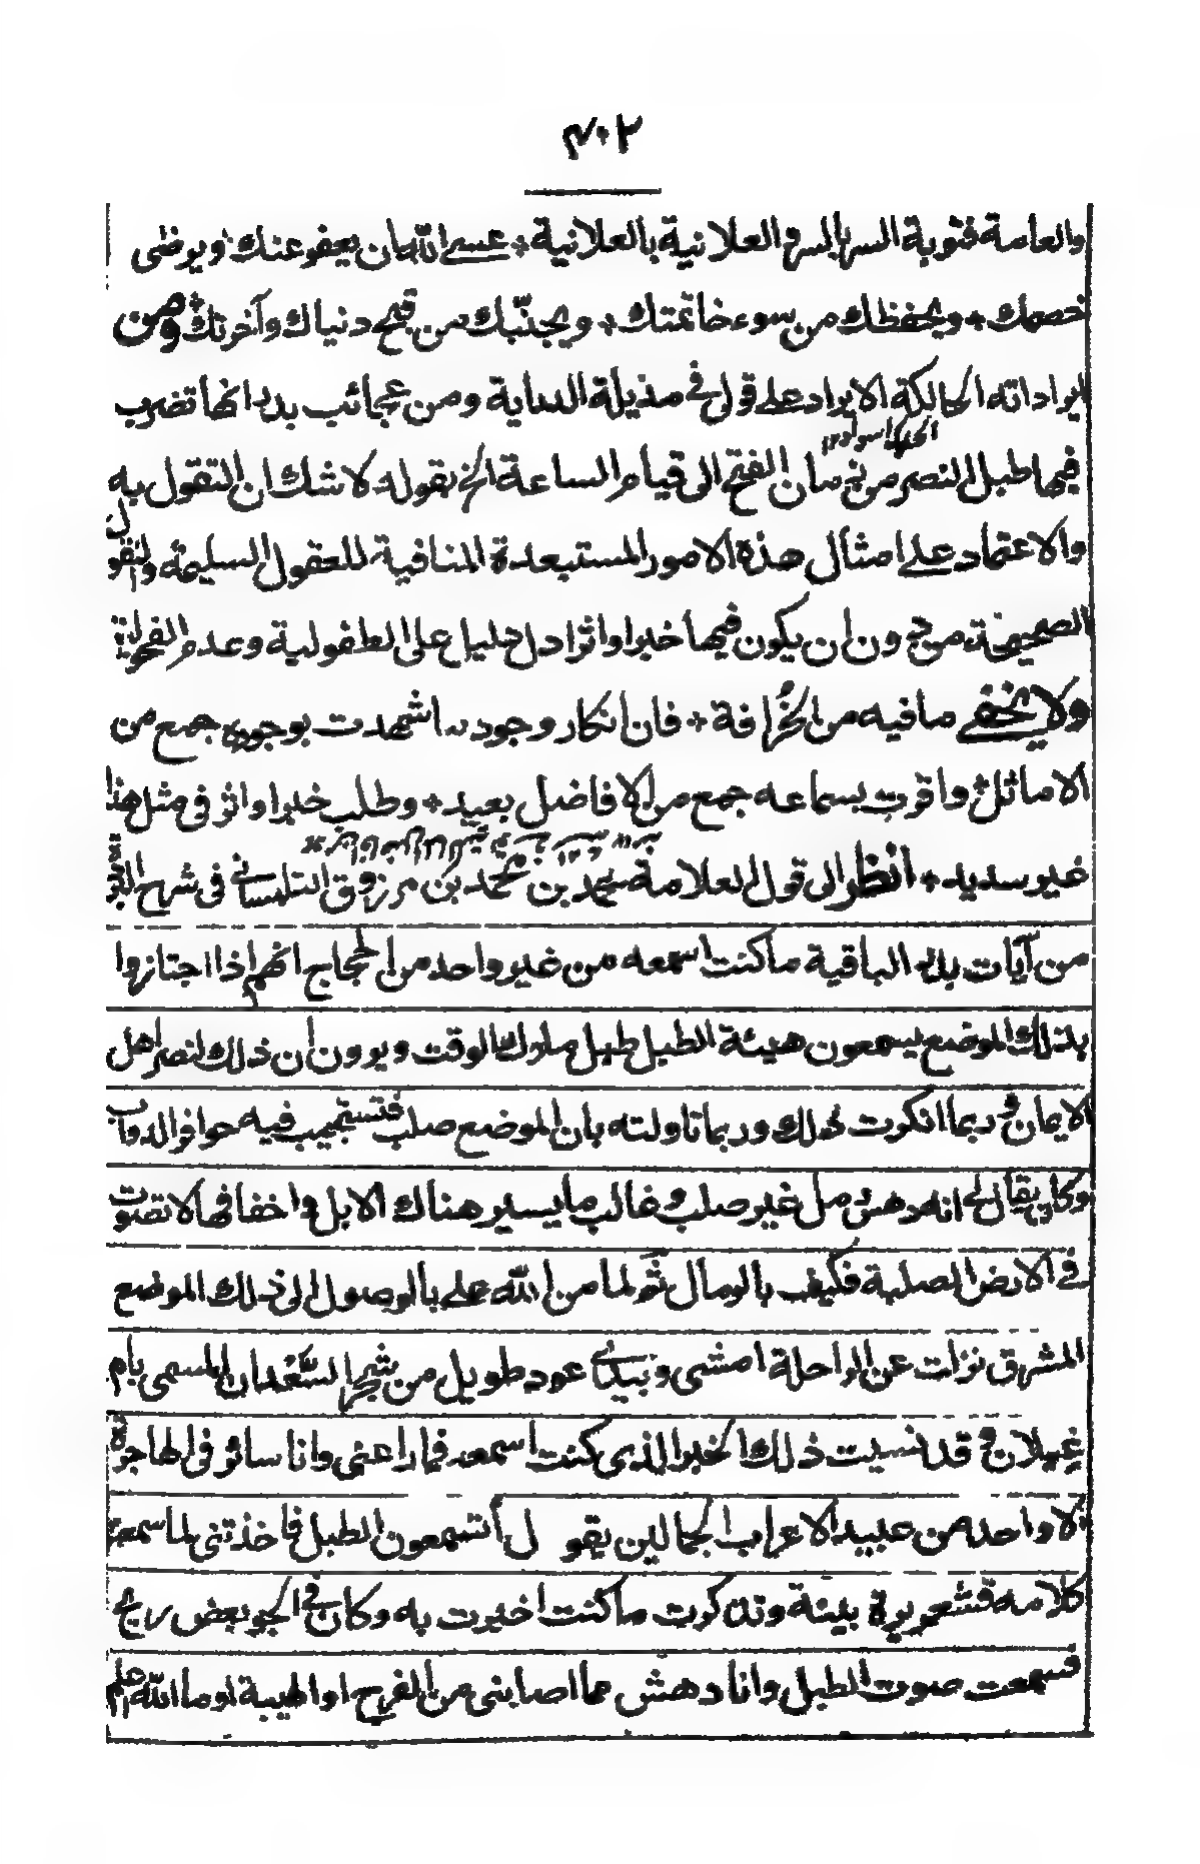 ٢٠٣
والعامة فتوبة السر بالسر والعلانية بالعلانية + عسى الله ان يعفو عنك ويرضى
خصمك + ويحفظك من سوء خاتمتك + ويجنّبك من قبح دنياك وآخرتك ومن
ايراداته الحالكة الايراد على قولى فى منيلة البداية ومن عجائب بدر انها تضرب
فيها طبل النصر من زمان الفتح الى قيام الساعة الخ بقوله لا شك ان التقول به
والاعتماد على امثال هذه الامور المستبعدة المنافية للعقول السليمة والنقول
الصحيحة من دون ان يكون فيها خبر او اثر ادل دليل على الطفولية وعدم الفحولية
ولا يخفى ما فيه من الخرافة + فان انكار وجود ما شهدت بوجوده جمع من
الاماثل واقرت بسماعه جمع من الافاضل بعيد + وطلب خبر او اثر فى مثل هذا
غير سديد + انظر الى قول العلامة محمد بن محمد بن مرزوق التلمسانى فى شرح البردة
من آيات بدر الباقية ما كنت اسمعه من غير واحد من الحجاج انهم اذا اجتازوا
بذلك الموضع يسمعون هيئة الطبل طبل ملوك الوقت ويرون ان ذلك لنصر اهل
الايمان وربما انكرت ذلك وربما تاولته بان الموضع صلب فتستجيب فيه حوافر الدواب
وكان يقال لى انه دهس رمل غير صلب وغالب ما يسير هناك الابل واخفافها لا تصوت
فى الارض الصلبة فكيف بالرمال ثم لما من الله على بالوصول الى ذلك الموضع
المشرق نزلت عن الراحلة امشى وبيدى عود طويل من شجر السَّعْدان المسمى بام
غيلان وقد نسيت ذلك الخبر الذى كنت اسمعه فما راعنى وانا سائر فى الهاجرة
الا واحد من عبيد الاعراب الجمالين يقول أتسمعون الطبل فاخذتنى لما سمعت
كلامه قشعريرة بينة وتذكرت ما كنت اخبرت به وكان فى الجو بعض ريح
فسمعت صوت الطبل وانا دهش مما اصابنى من الفرح او الهيبة او ما الله اعلم